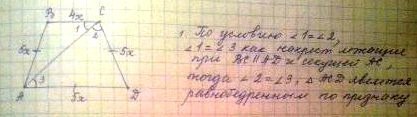 B 4x C
1 2
5x 5x
3
A 5x D
1. По условию ∠1=∠2,
∠1=∠3 как накрест лежащие
при BC∥AD и секущей AC,
тогда ∠2=∠3, △ACD является
равнобедренным по признаку